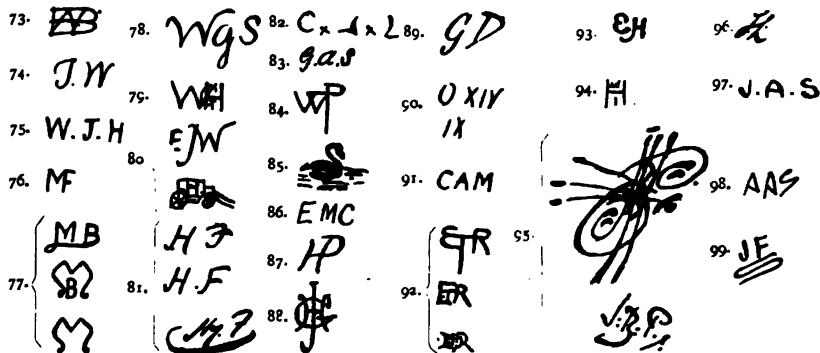 73.
74. J. W
75. W. J. H
76. MF
77. MB
MB
M
78. WgS
79. WH
80 E. JW
81. H F
H. F
Hy. F
82. C x J x L
83. G.a.S
84. WP
85.
86. EMC
87. HP
88.
89. GD
90. O XIV
IX
91. CAM
92. ETR
ETR
93. EH
94. H
95.
96.
97. J. A. S
98. AAS
99. JF